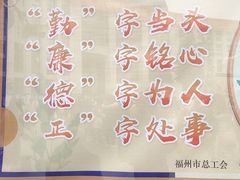 “勤”字当头
“廉”字铭心
“德”字为人
“正”字处事
福州市总工会